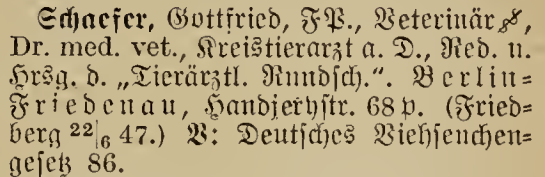 Schaefer, Gottfried, FP., Veterinär
Dr. med. vet., Kreistierarzt a. D., Red. u.
Hrsg. d. „Tierärztl. Rundsch.“. Berlin=
Friedenau, Handjerystr. 68 p. (Fried=
berg 22|6 47.) V: Deutsches Viehseuchen=
gesetz 86.